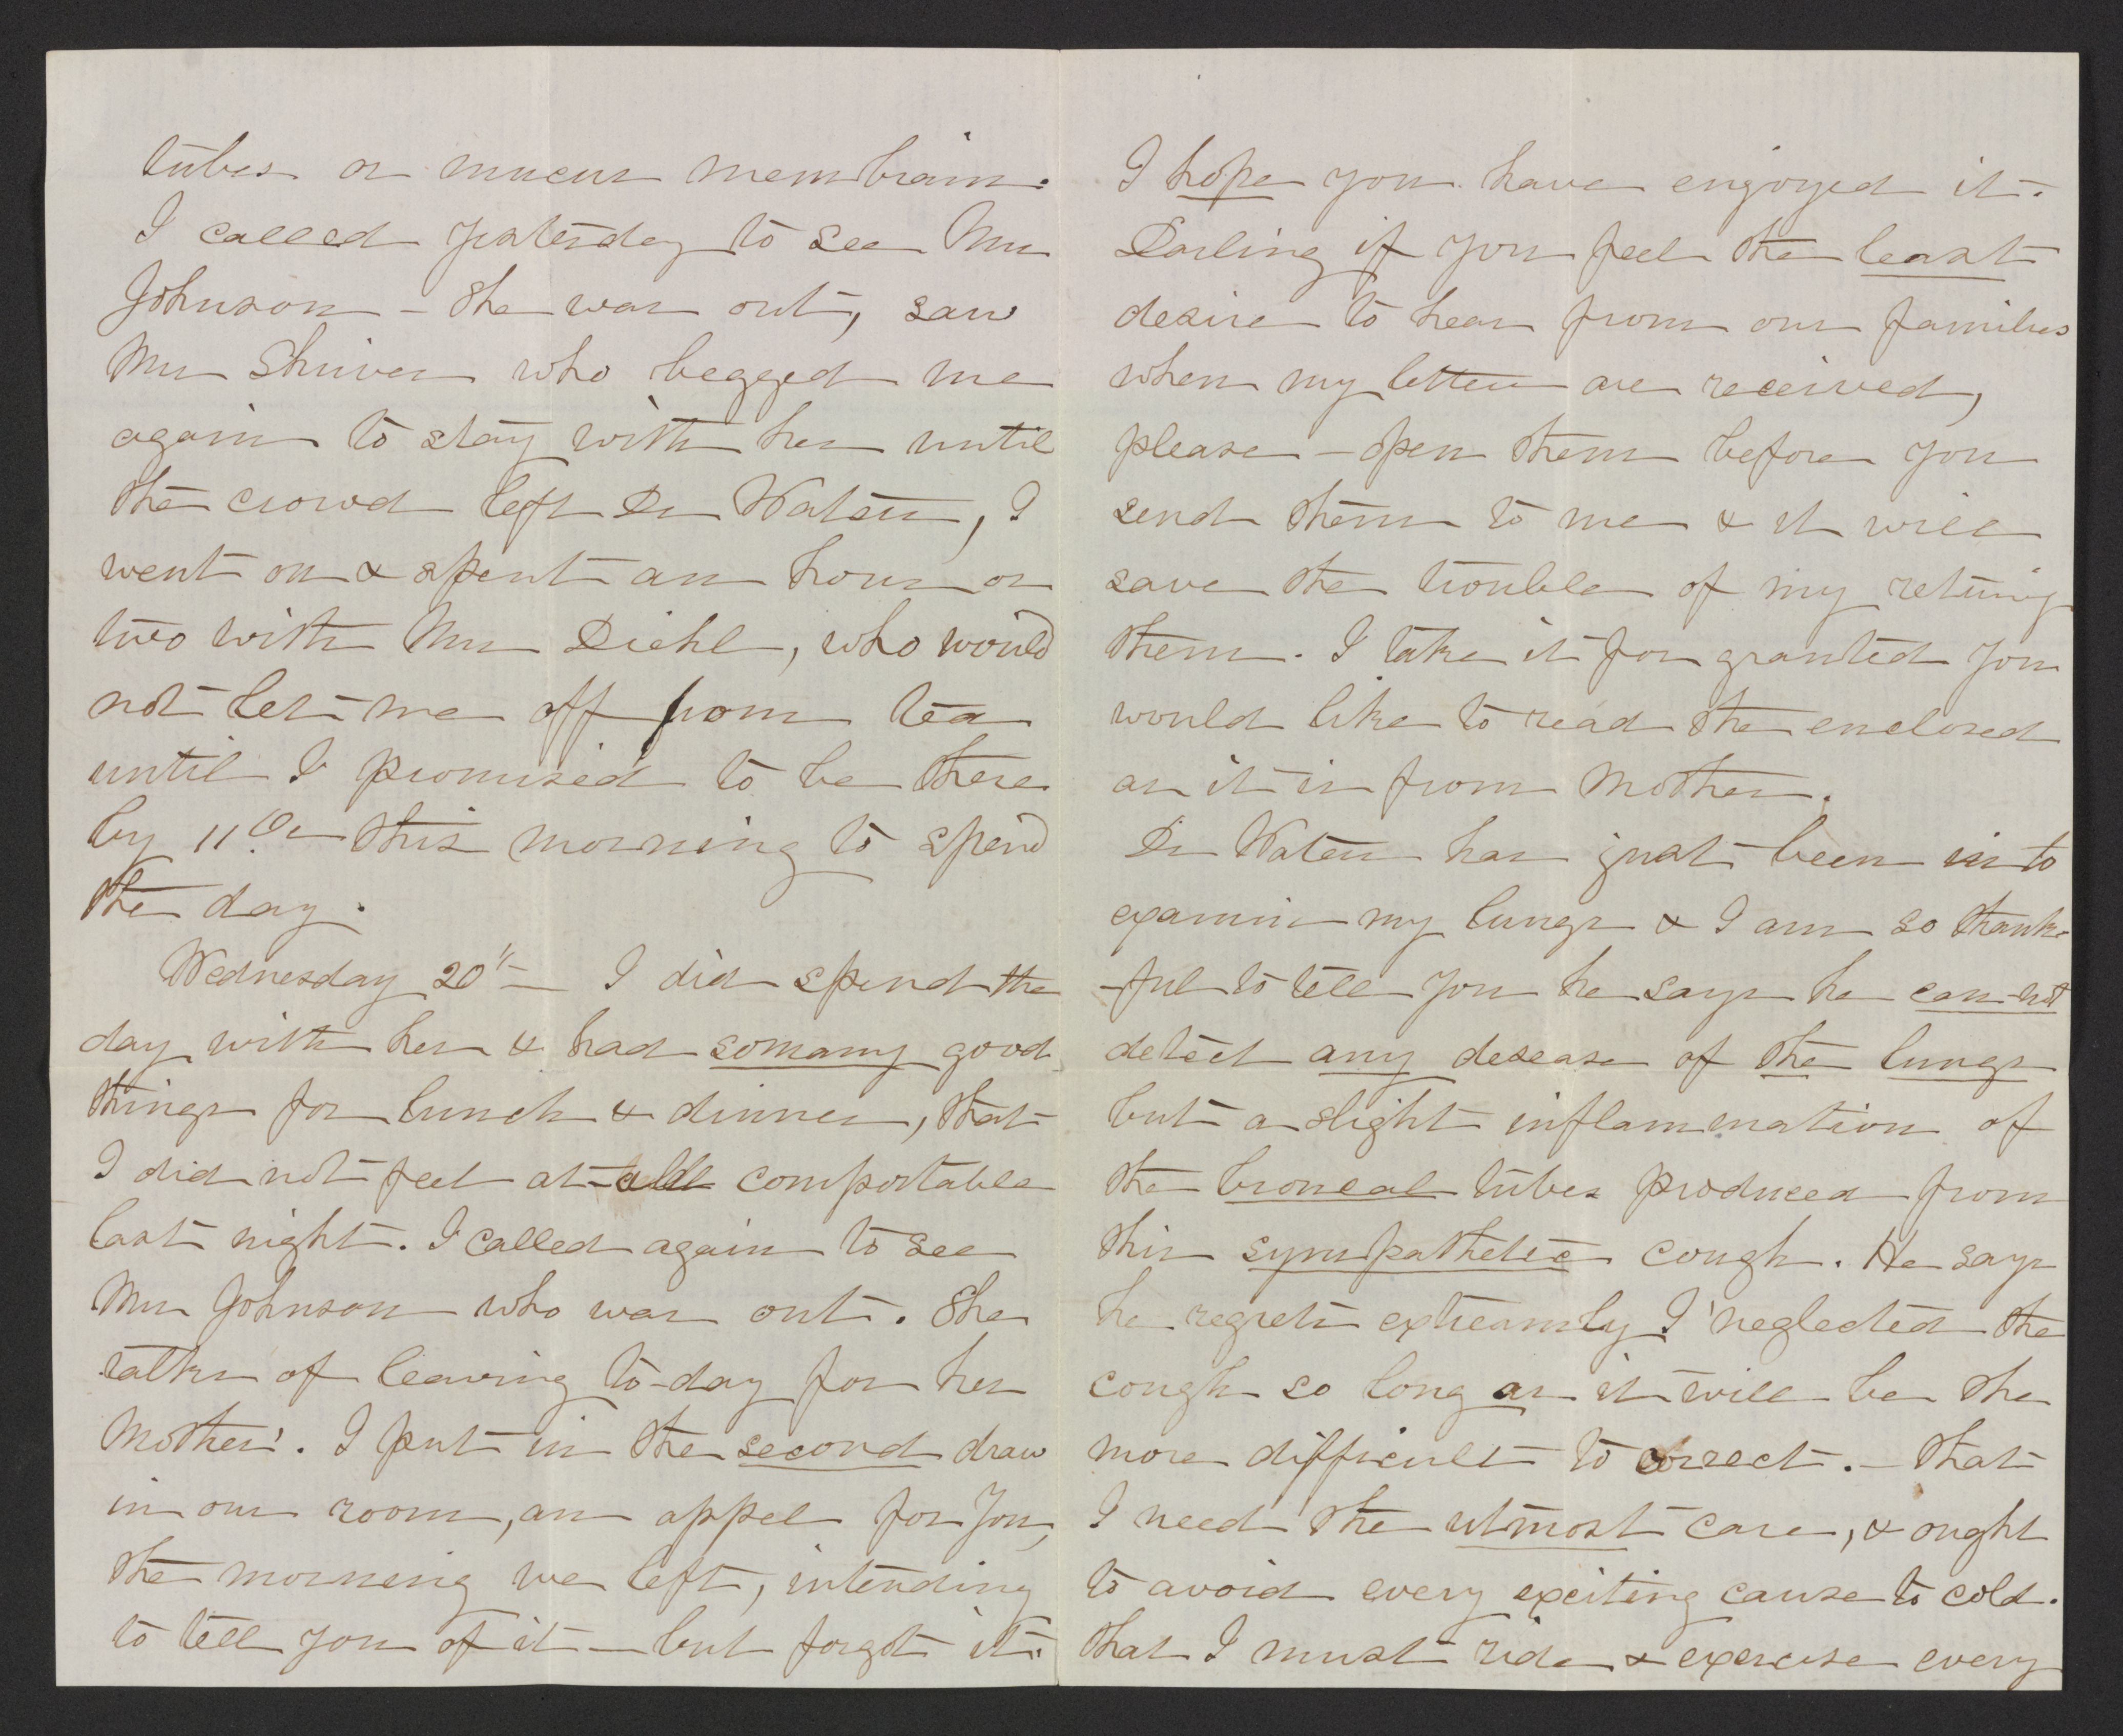 tubes or mucus membrain.
I called yesterday to see Mrs
Johnson – She was out, saw
Mrs Shriver who begged me
again to stay with her until
the crowd left Dr Waters, I
went on & spent an hour or
two with Mrs Diehl, who would
not let me off from tea
until I promised to be there
by 11 Oc this morning to spend
the day.
Wednesday 20th – I did spend the
day with her & had somany good
things for lunch & dinner, that
I did not feel at all comportable
last night. I called again to see
Mrs Johnson who was out. She
talks of leaving to-day for her
Mothers'. I put in the second draw
in our room, an appel for you,
the morning we left, intending
to tell you of it – but forgot it.
I hope you have engoyed it.
Darling if you feel the least
desire to hear from our families
when my letters are received,
please – open them before you
send them to me & it will
save the trouble of my returing
them. I take it for granted you
would like to read the enclosed
as it is from Mother.
Dr Waters has just been in to
examin my lungs & I am so thank-
-ful to tell you he says he can-not
detect any desease of the lungs
but a slight inflammation of
the broncal tubes produced from
this sympathetic cough. He says
he regrets extreamly I neglected the
cough so long as it will be the
more difficult to correct. – that
I need the utmost care, & ought
to avoid every exciting cause to cold.
that I must ride & exercise every